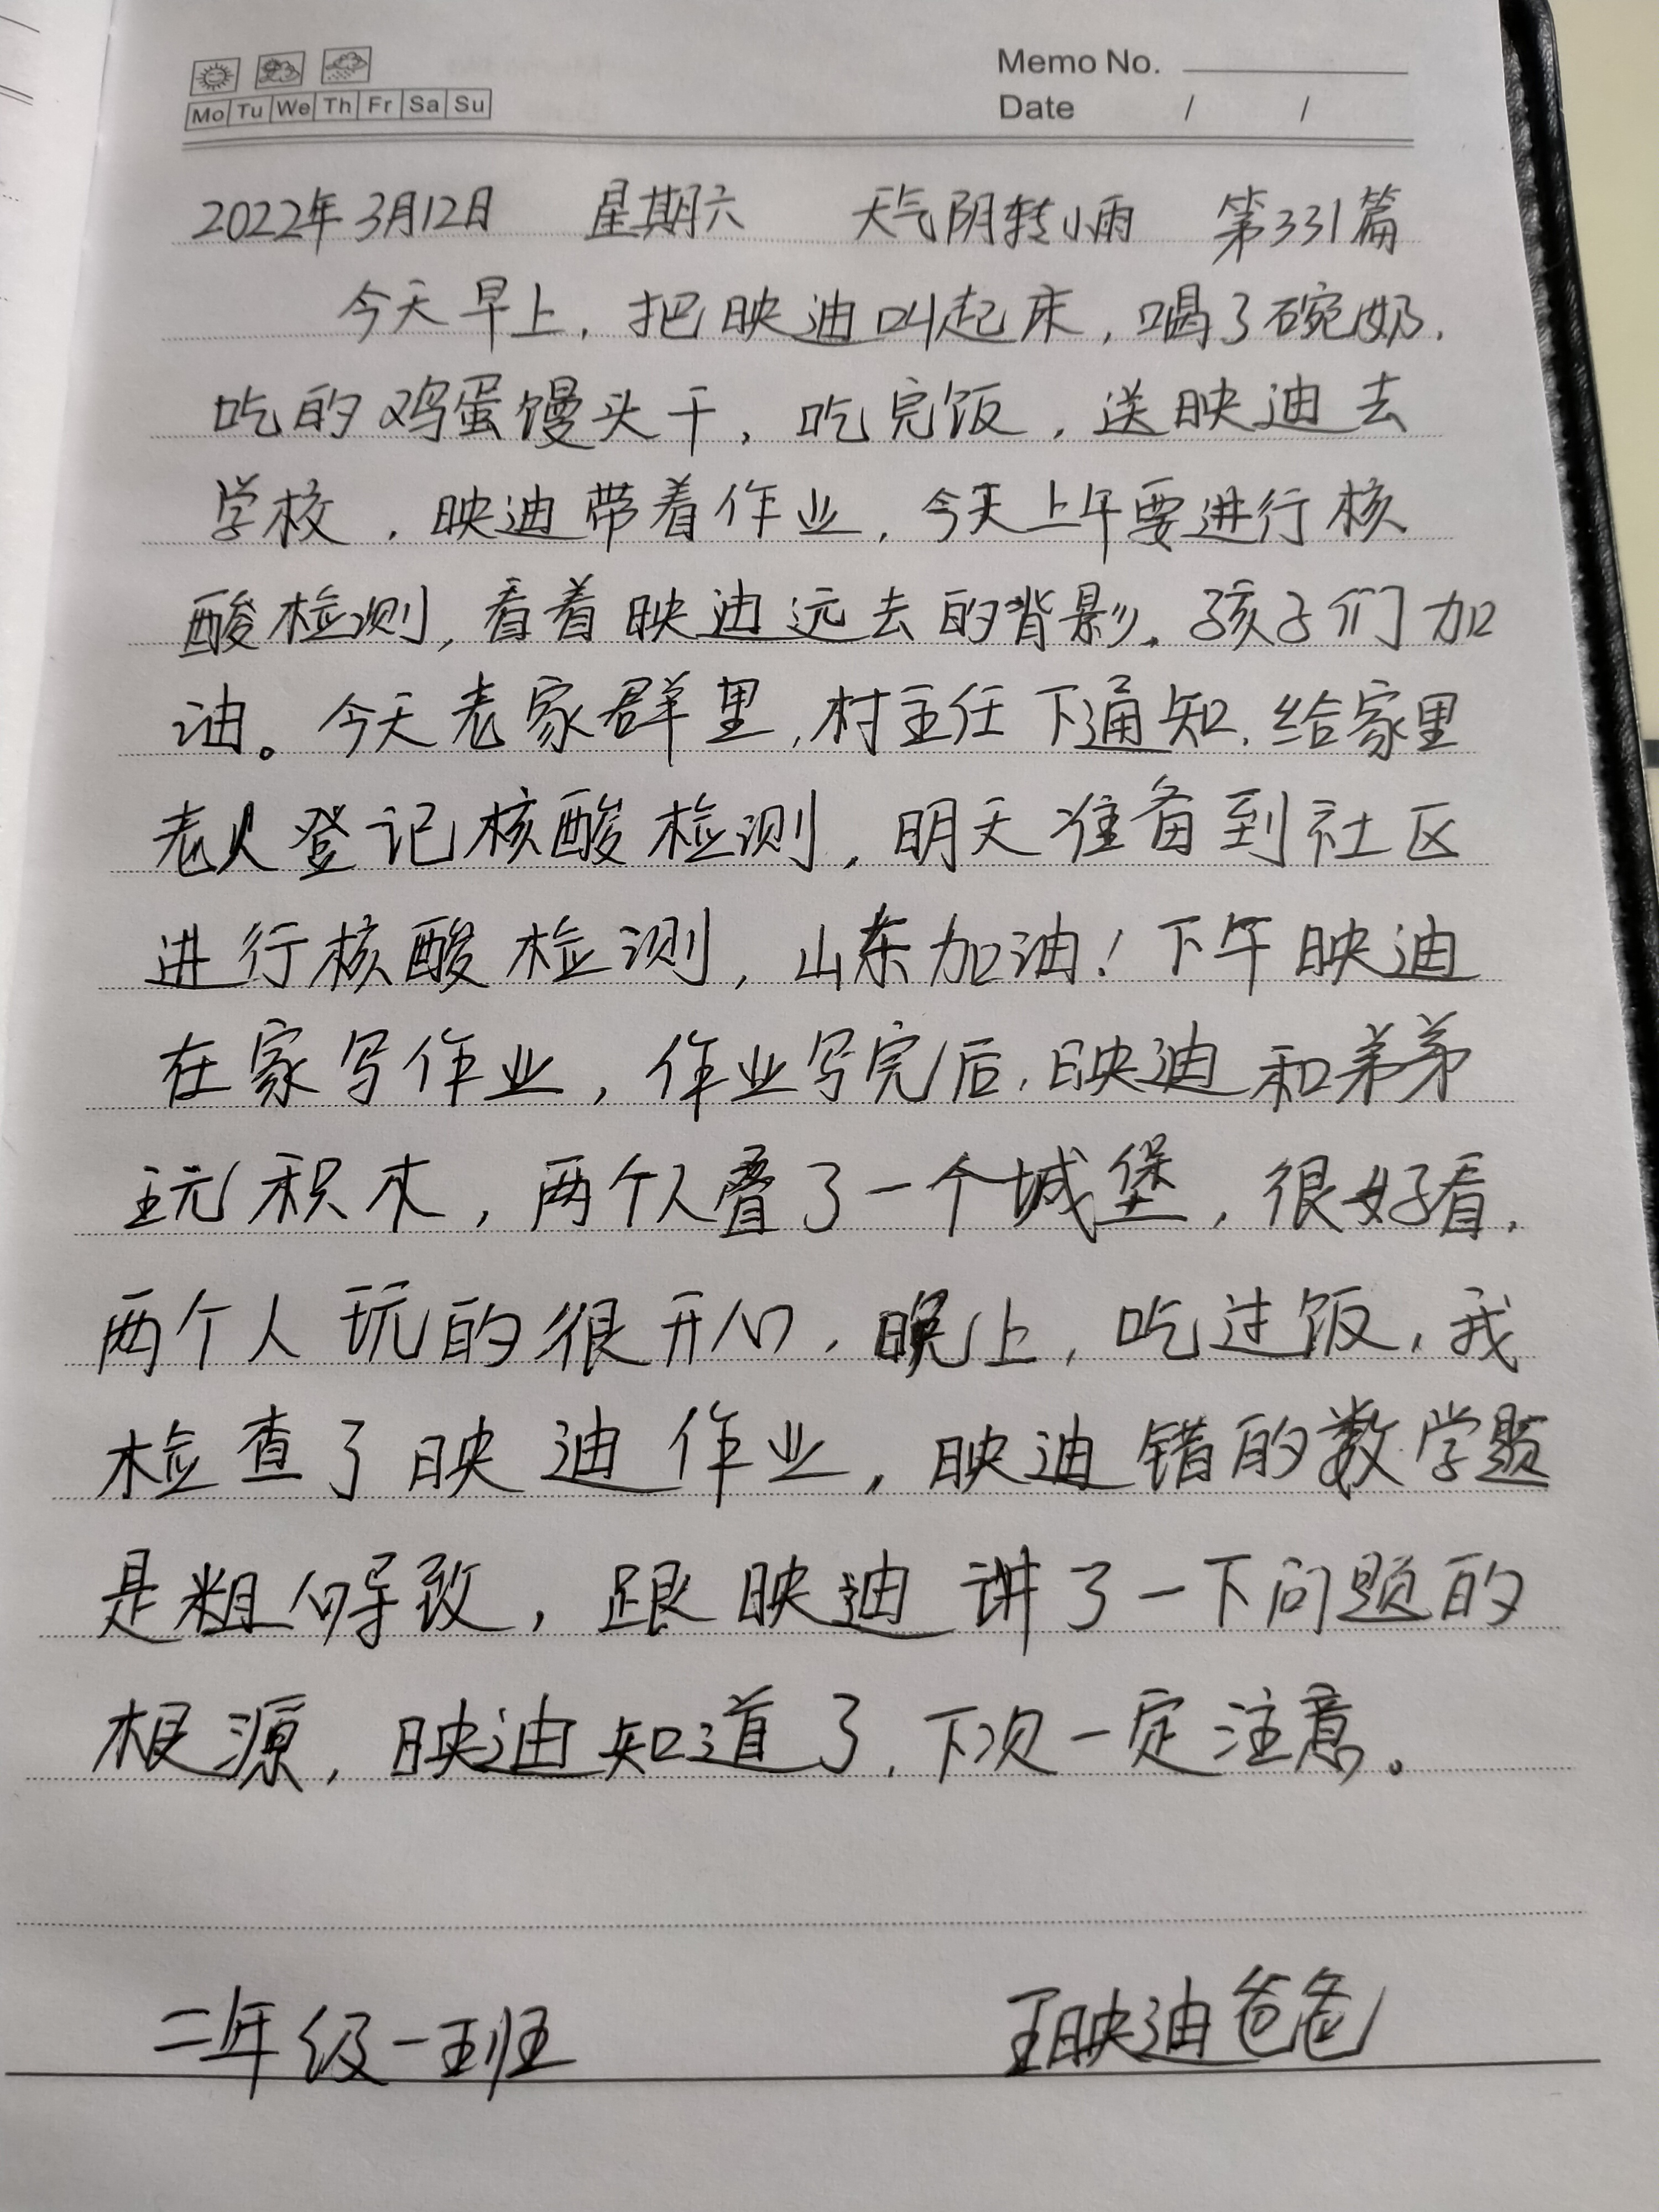 Memo No.
Mo Tu We Th Fr Sa Su
Date / /
2022年3月12日 星期六 天气阴转小雨 第331篇
今天早上,把映迪叫起床,喝了碗奶,
吃的鸡蛋馒头干,吃完饭,送映迪去
学校,映迪带着作业,今天上午要进行核
酸检测,看着映迪远去的背影,孩子们加
油。今天老家群里,村主任下通知,给家里
老人登记核酸检测,明天准备到社区
进行核酸检测,山东加油!下午映迪
在家写作业,作业写完后,映迪和弟弟
玩积木,两个人叠了一个城堡,很好看,
两个人玩的很开心,晚上,吃过饭,我
检查了映迪作业,映迪错的数学题
是粗心导致,跟映迪讲了一下问题的
根源,映迪知道了,下次一定注意。
二年级一班 王映迪爸爸